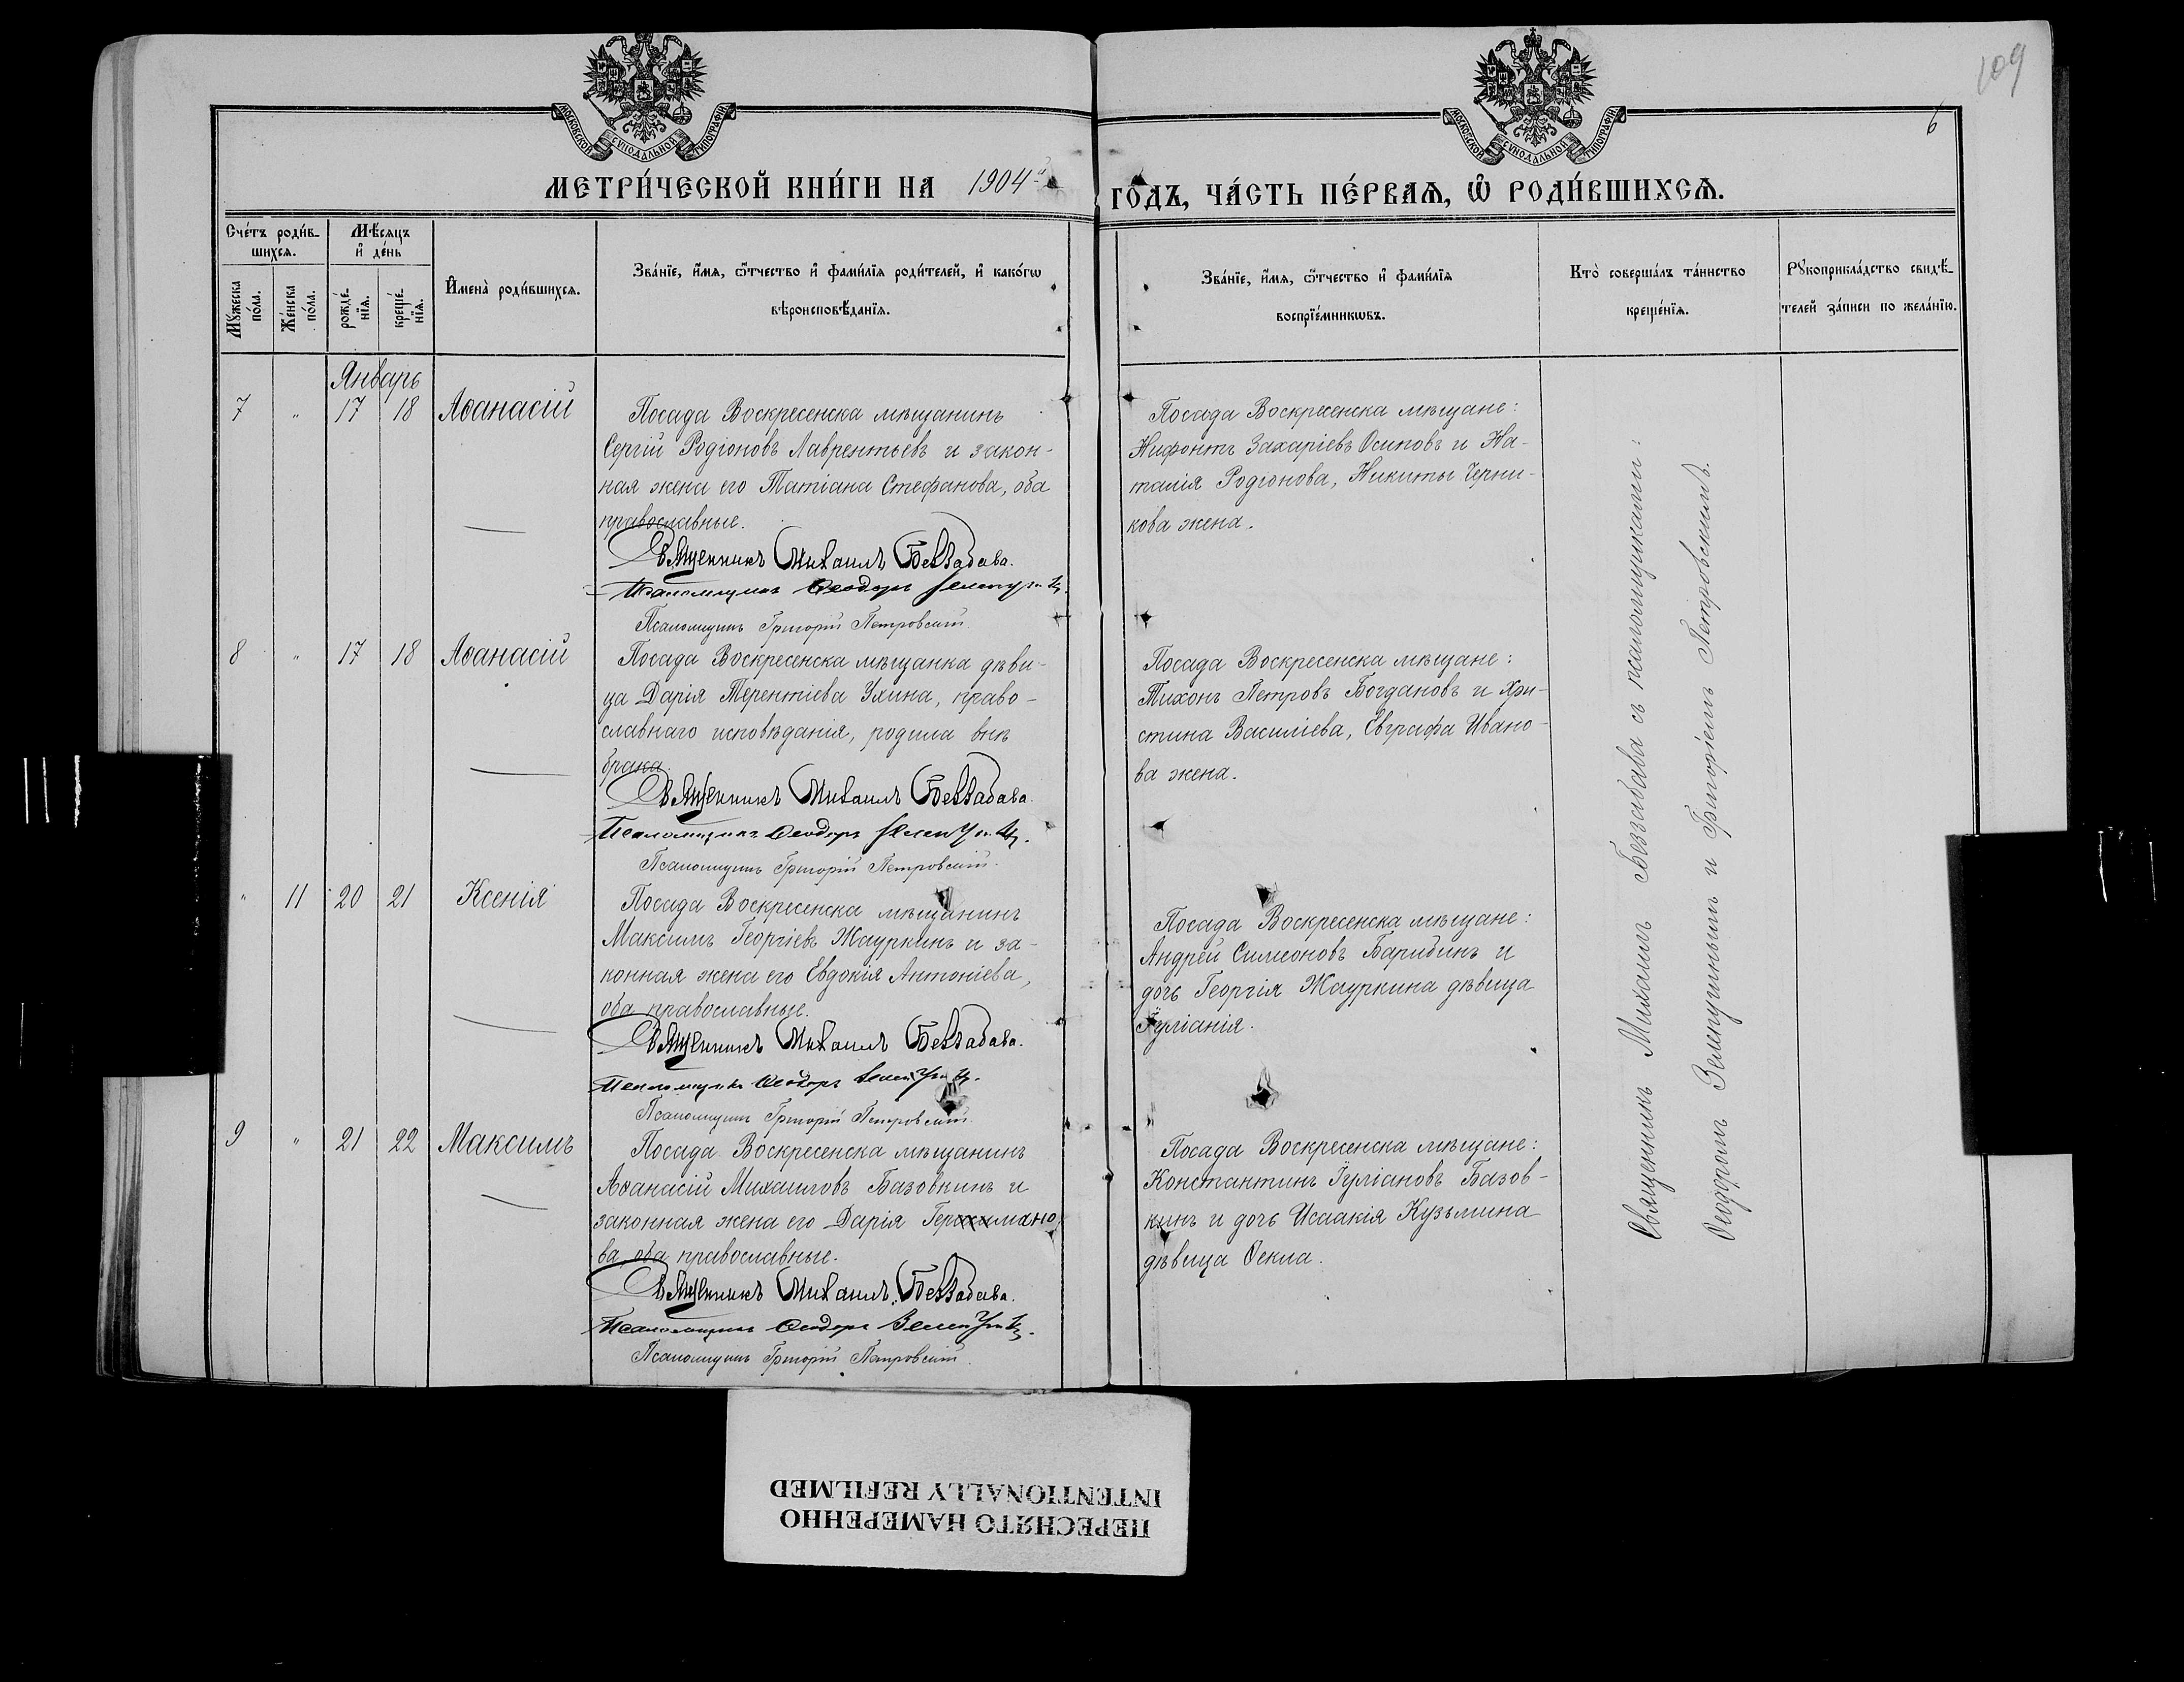 109
6
МОСКОВСКОЙ СѴНОДАЛЬНОЙ ТИПОГРАФІИ
МОСКОВСКОЙ СѴНОДАЛЬНОЙ ТИПОГРАФІИ
МЕТРИ́ЧЕСКОЙ КНИ́ГИ НА 1904й
ГО́ДЪ, ЧА́СТЬ ПЕ́РВАѦ, Ѽ РОДИ́ВШИХСѦ.
Сче́тъ роди́в-
шихсѧ.
Мѣ́сяцъ
и҆ де́нь
Мꙋ́жеска
по́ла.
Же́нска
по́ла.
рожде́-
нїѧ.
креще́-
нїѧ.
И҆мена̀ роди́вшихсѧ.
Зва́нїе, и҆́мѧ, ѻ҆́тчество и҆ фами́лїѧ роди́телей, и҆ како́гѡ
вѣроисповѣ́данїѧ.
Зва́нїе, и҆́мѧ, ѻ҆́тчество и҆ фами́лїѧ
воспрїе́мникѡвъ.
Кто̀ соверша́лъ та́инство
креще́нїѧ.
Рꙋкоприкла́дство свидѣ́-
телей за́писи по жела́нїю.
Январь
7 " 17 18 Аѳанасій
Посада Воскресенска мѣщанинъ
Сергій Родіоновъ Лаврентьевъ и закон-
ная жена его Татіана Стефанова, оба
православные.
Священникъ Михаилъ Беззабава.
Псаломщикъ Ѳеодоръ
Псаломщикъ Григорій Петровскій.
Посада Воскресенска мѣщане:
Нифонтъ Захаріевъ Осиповъ и На-
талія Родіонова, Никиты Черни-
кова жена.
8 " 17 18 Аѳанасій
Посада Воскресенска мѣщанка дѣви-
ца Дарія Терентіева Ухина, право-
славнаго исповѣданія, родила внѣ
брака.
Священникъ Михаилъ Беззабава.
Псаломщикъ Ѳеодоръ
Псаломщикъ Григорій Петровскій.
Посада Воскресенска мѣщане:
Тихонъ Петровъ Богдановъ и Хри-
стина Василіева, Евграфа Ивано-
ва жена.
" 11 20 21 Ксенія
Посада Воскресенска мѣщанинъ
Максимъ Георгіевъ Жауркинъ и за-
конная жена его Евдокія Антоніева,
оба православные.
Священникъ Михаилъ Беззабава.
Псаломщикъ Ѳеодоръ
Псаломщикъ Григорій Петровскій.
Посада Воскресенска мѣщане:
Андрей Симеоновъ Барибинъ и
дочь Георгія Жауркина дѣвица
Іуліанія.
9 " 21 22 Максимъ
Посада Воскресенска мѣщанинъ
Аѳанасій Михаиловъ Базовкинъ и
законная жена его Дарія
ва, оба православные.
Священникъ Михаилъ Беззабава.
Псаломщикъ Ѳеодоръ
Псаломщикъ Григорій Петровскій.
Посада Воскресенска мѣщане:
Константинъ Іуліановъ Базов-
кинъ и дочь Исаакія Кузьмина
дѣвица Ѳекла.
Священникъ Михаилъ Беззабава съ псаломщиками:
Ѳеодоромъ и Григоріемъ Петровскимъ.
ПЕРЕСНЯТО НАМЕРЕННО
INTENTIONALLY REFILMED